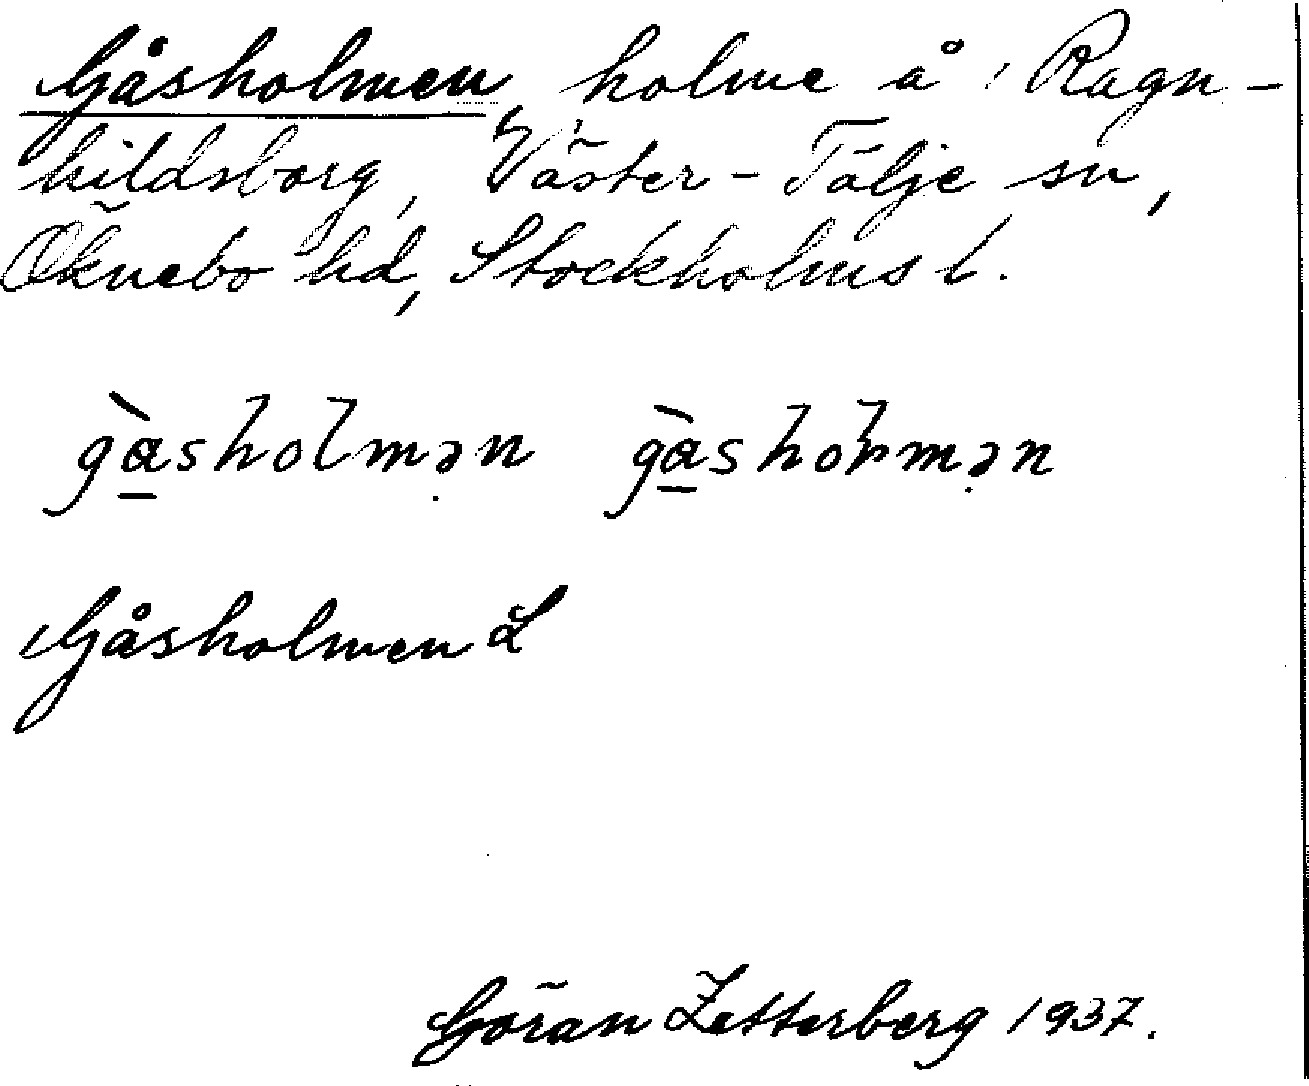 Gåsholmen, holme å Ragn-
hildsborg, Väster-Tälje sn,
Öknebo hd, Stockholms l.
gàsholmən gàshoɫmən
Gåsholmen L
Göran Zetterberg 1937.